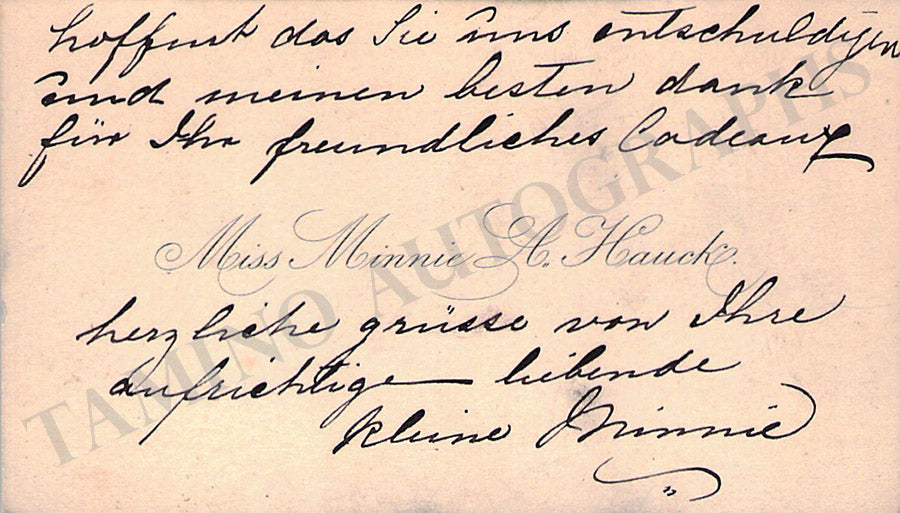 hoffent das Sie uns entschuldigen
und meinen besten dank
für Ihr freundliches Cadeaux
Miss Minnie A. Hauck.
herzliche grüsse von Ihre
aufrichtige liebende
kleine Minnie
TAMINO AUTOGRAPHS